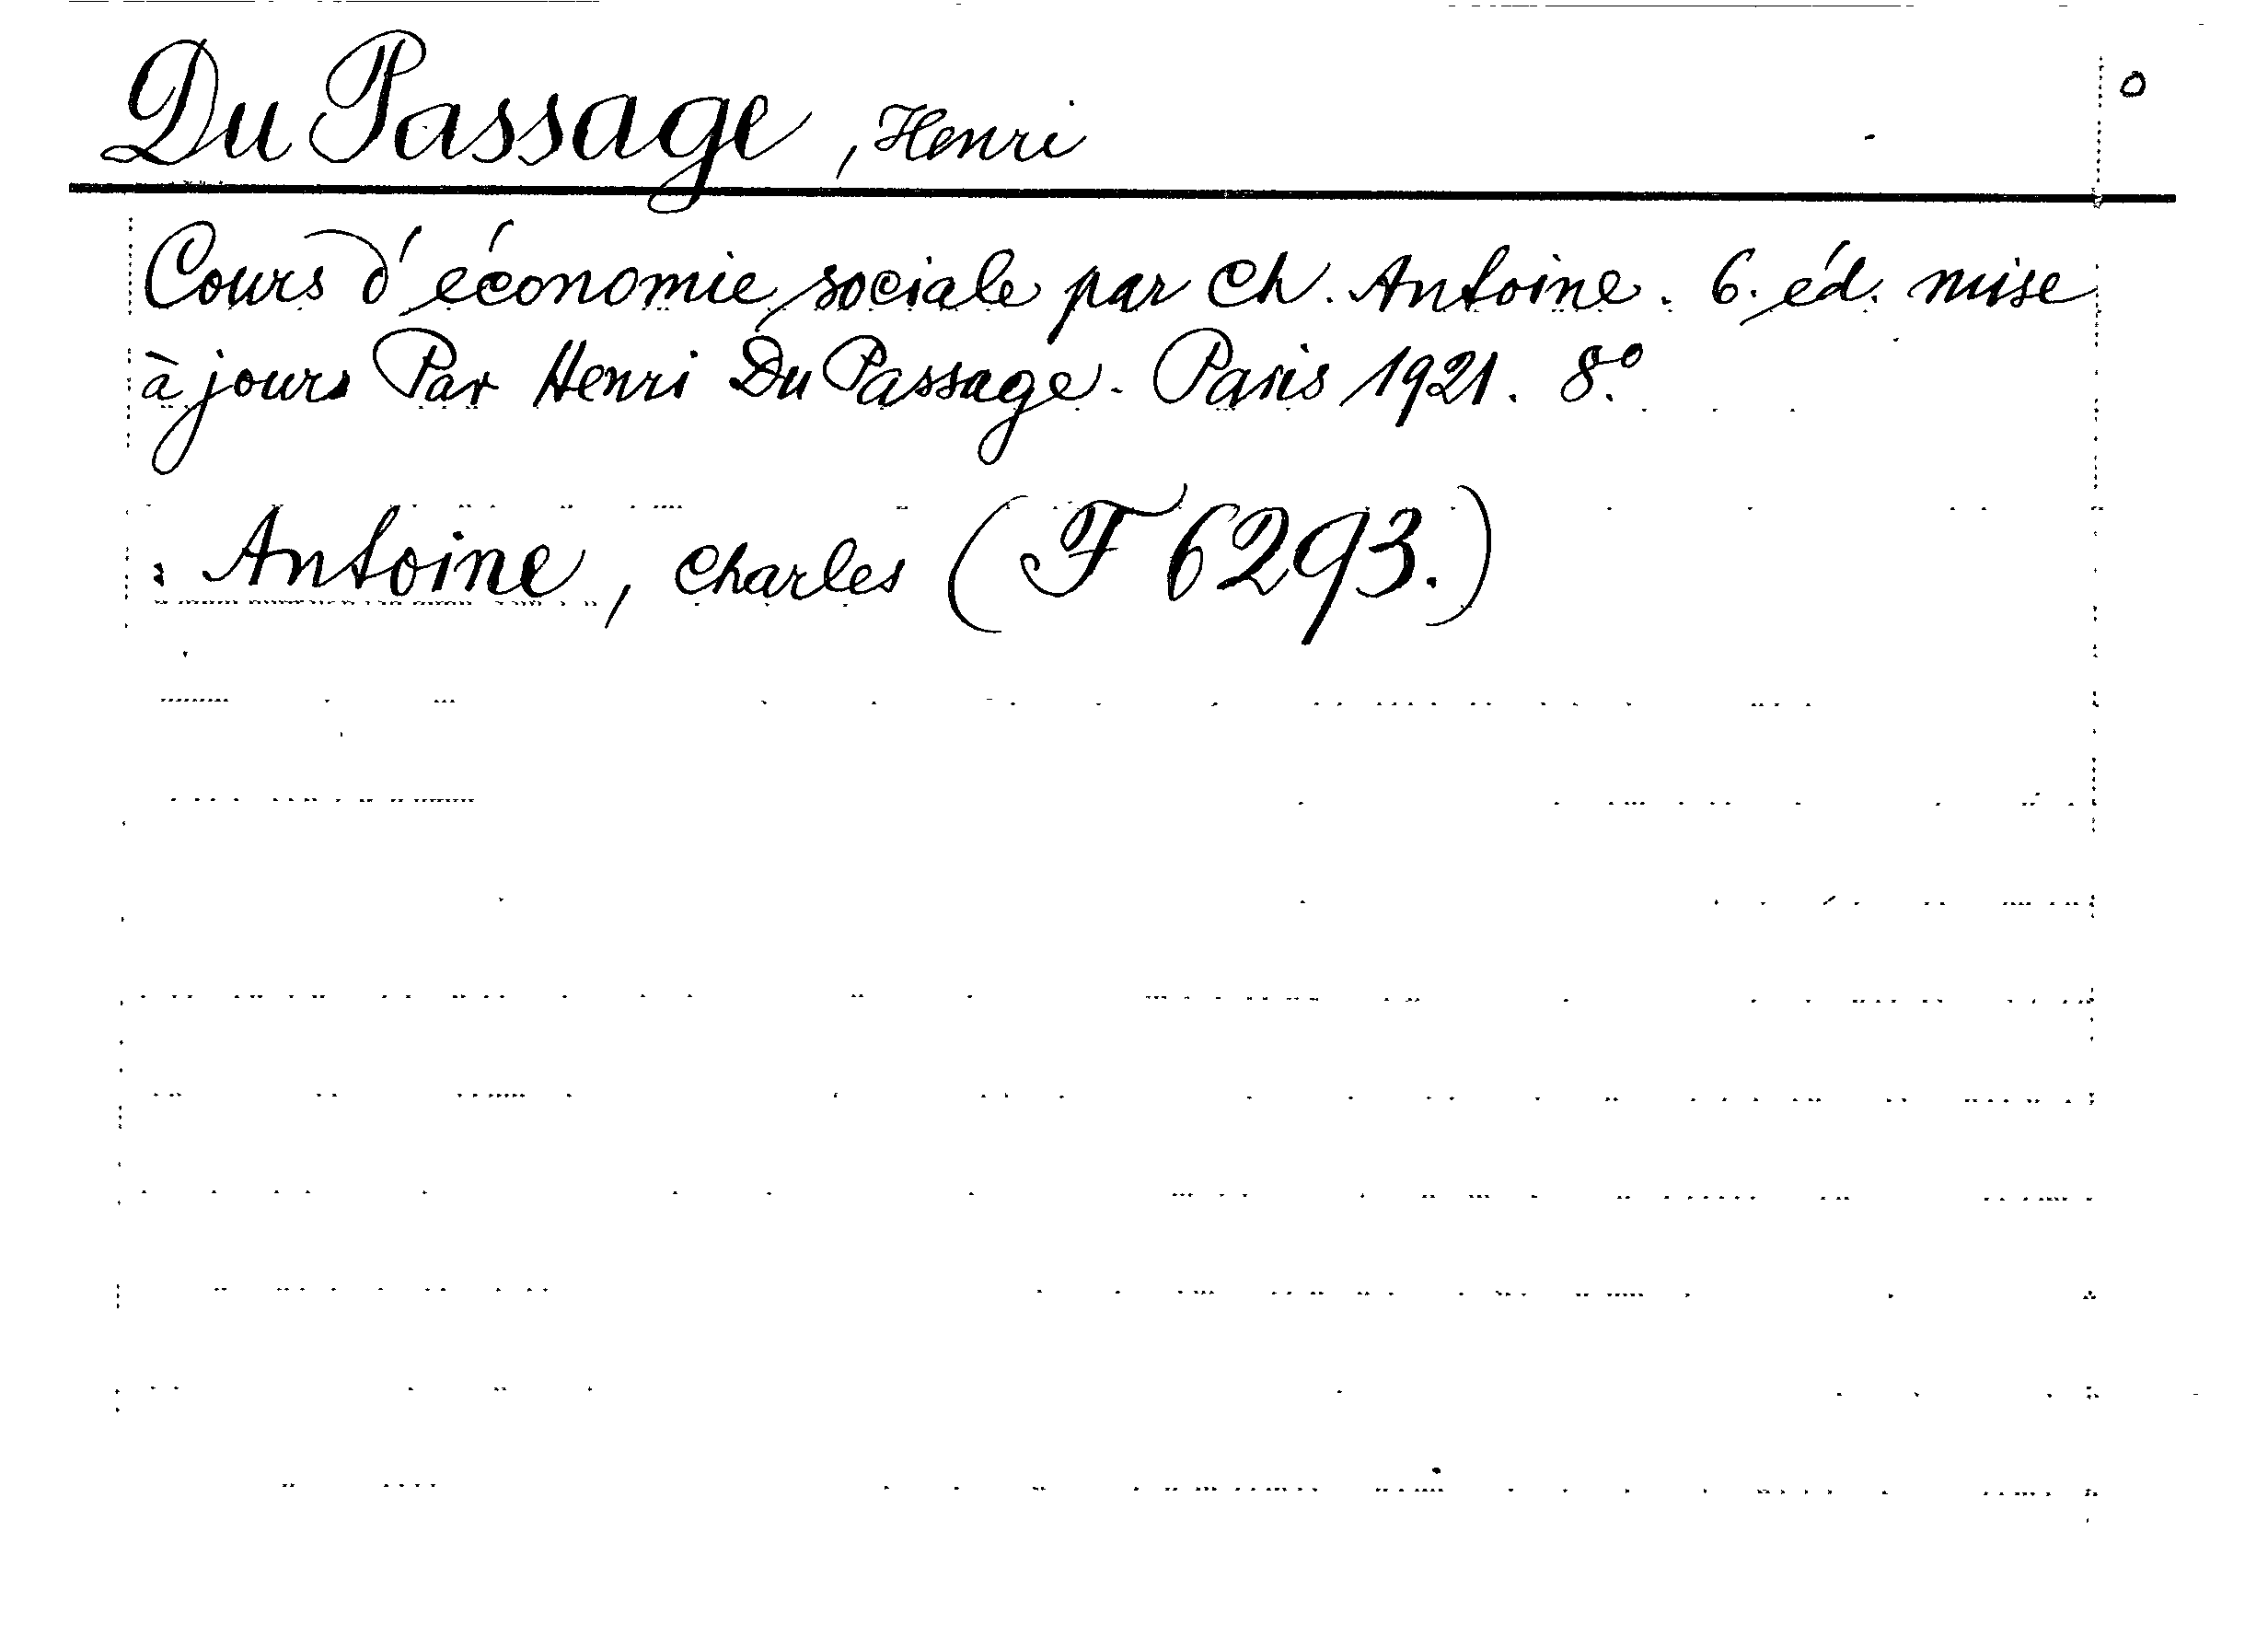 Du Passage, Henri o
Cours d'économie sociale par Ch. Antoine. 6. éd. mise
à jours Par Henri Du Passage. Paris 1921. 8.º
: Antoine, Charles (F 6293.)